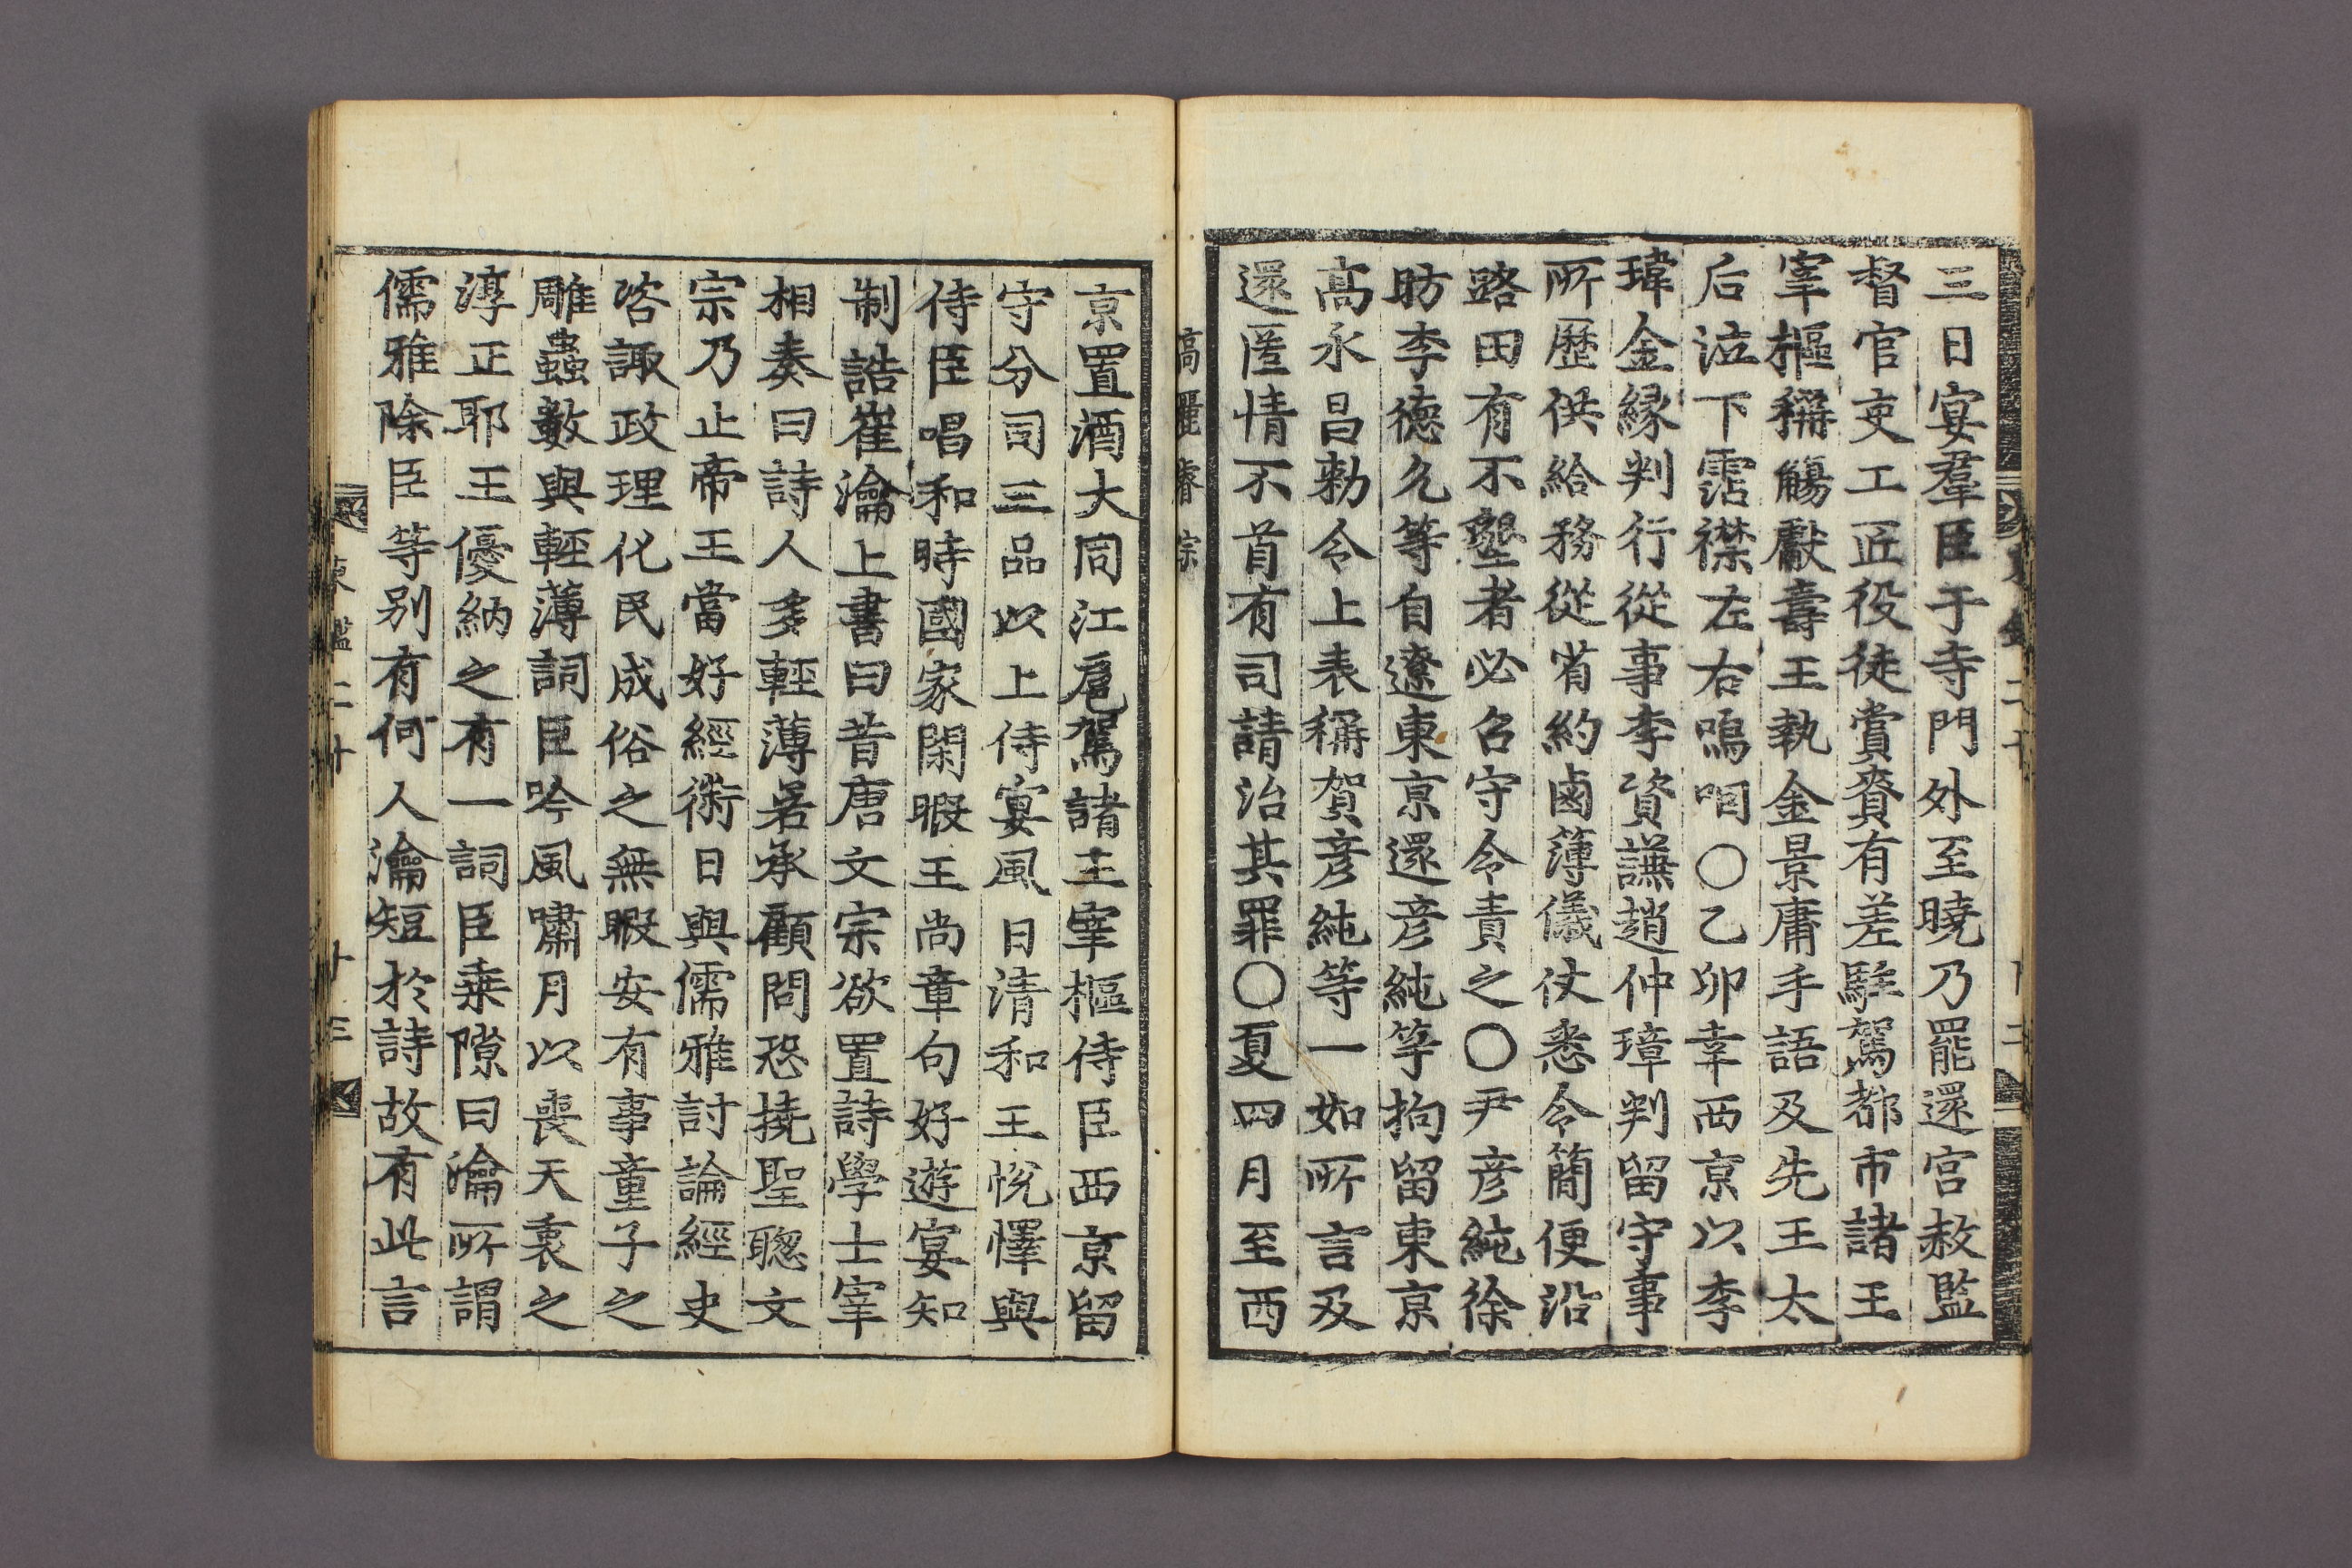 三日宴羣臣于寺門外至曉乃罷還宮赦監
督官吏工匠役徒賞賚有差駐駕都市諸王
宰樞稱觴獻壽王執金景庸手語及先王太
后泣下霑襟左右嗚咽○乙卯幸西京以李
瑋金緣判行從事李資謙趙仲璋判留守事
所歷供給務從省約鹵簿儀仗悉令簡便沿
路田有不墾者必召守令責之○尹彦純徐
昉李德允等自遼東京還彦純等拘留東京
高永昌勑令上表稱賀彦純等一如所言及
還匿情不首有司請治其罪○夏四月至西
高麗睿宗
京置酒大同江扈駕諸王宰樞侍臣西京留
守分司三品以上侍宴風日清和王悅懌與
侍臣唱和時國家閑暇王尚章句好遊宴知
制誥崔瀹上書曰昔唐文宗欲置詩學士宰
相奏曰詩人多輕薄若承顧問恐撓聖聰文
宗乃止帝王當好經術日與儒雅討論經史
咨諏政理化民成俗之無暇安有事童子之
雕蟲數與輕薄詞臣吟風嘯月以喪天衷之
淳正耶王優納之有一詞臣乘隙曰瀹所謂
儒雅除臣等別有何人瀹短於詩故有此言
東鑑二十
十三